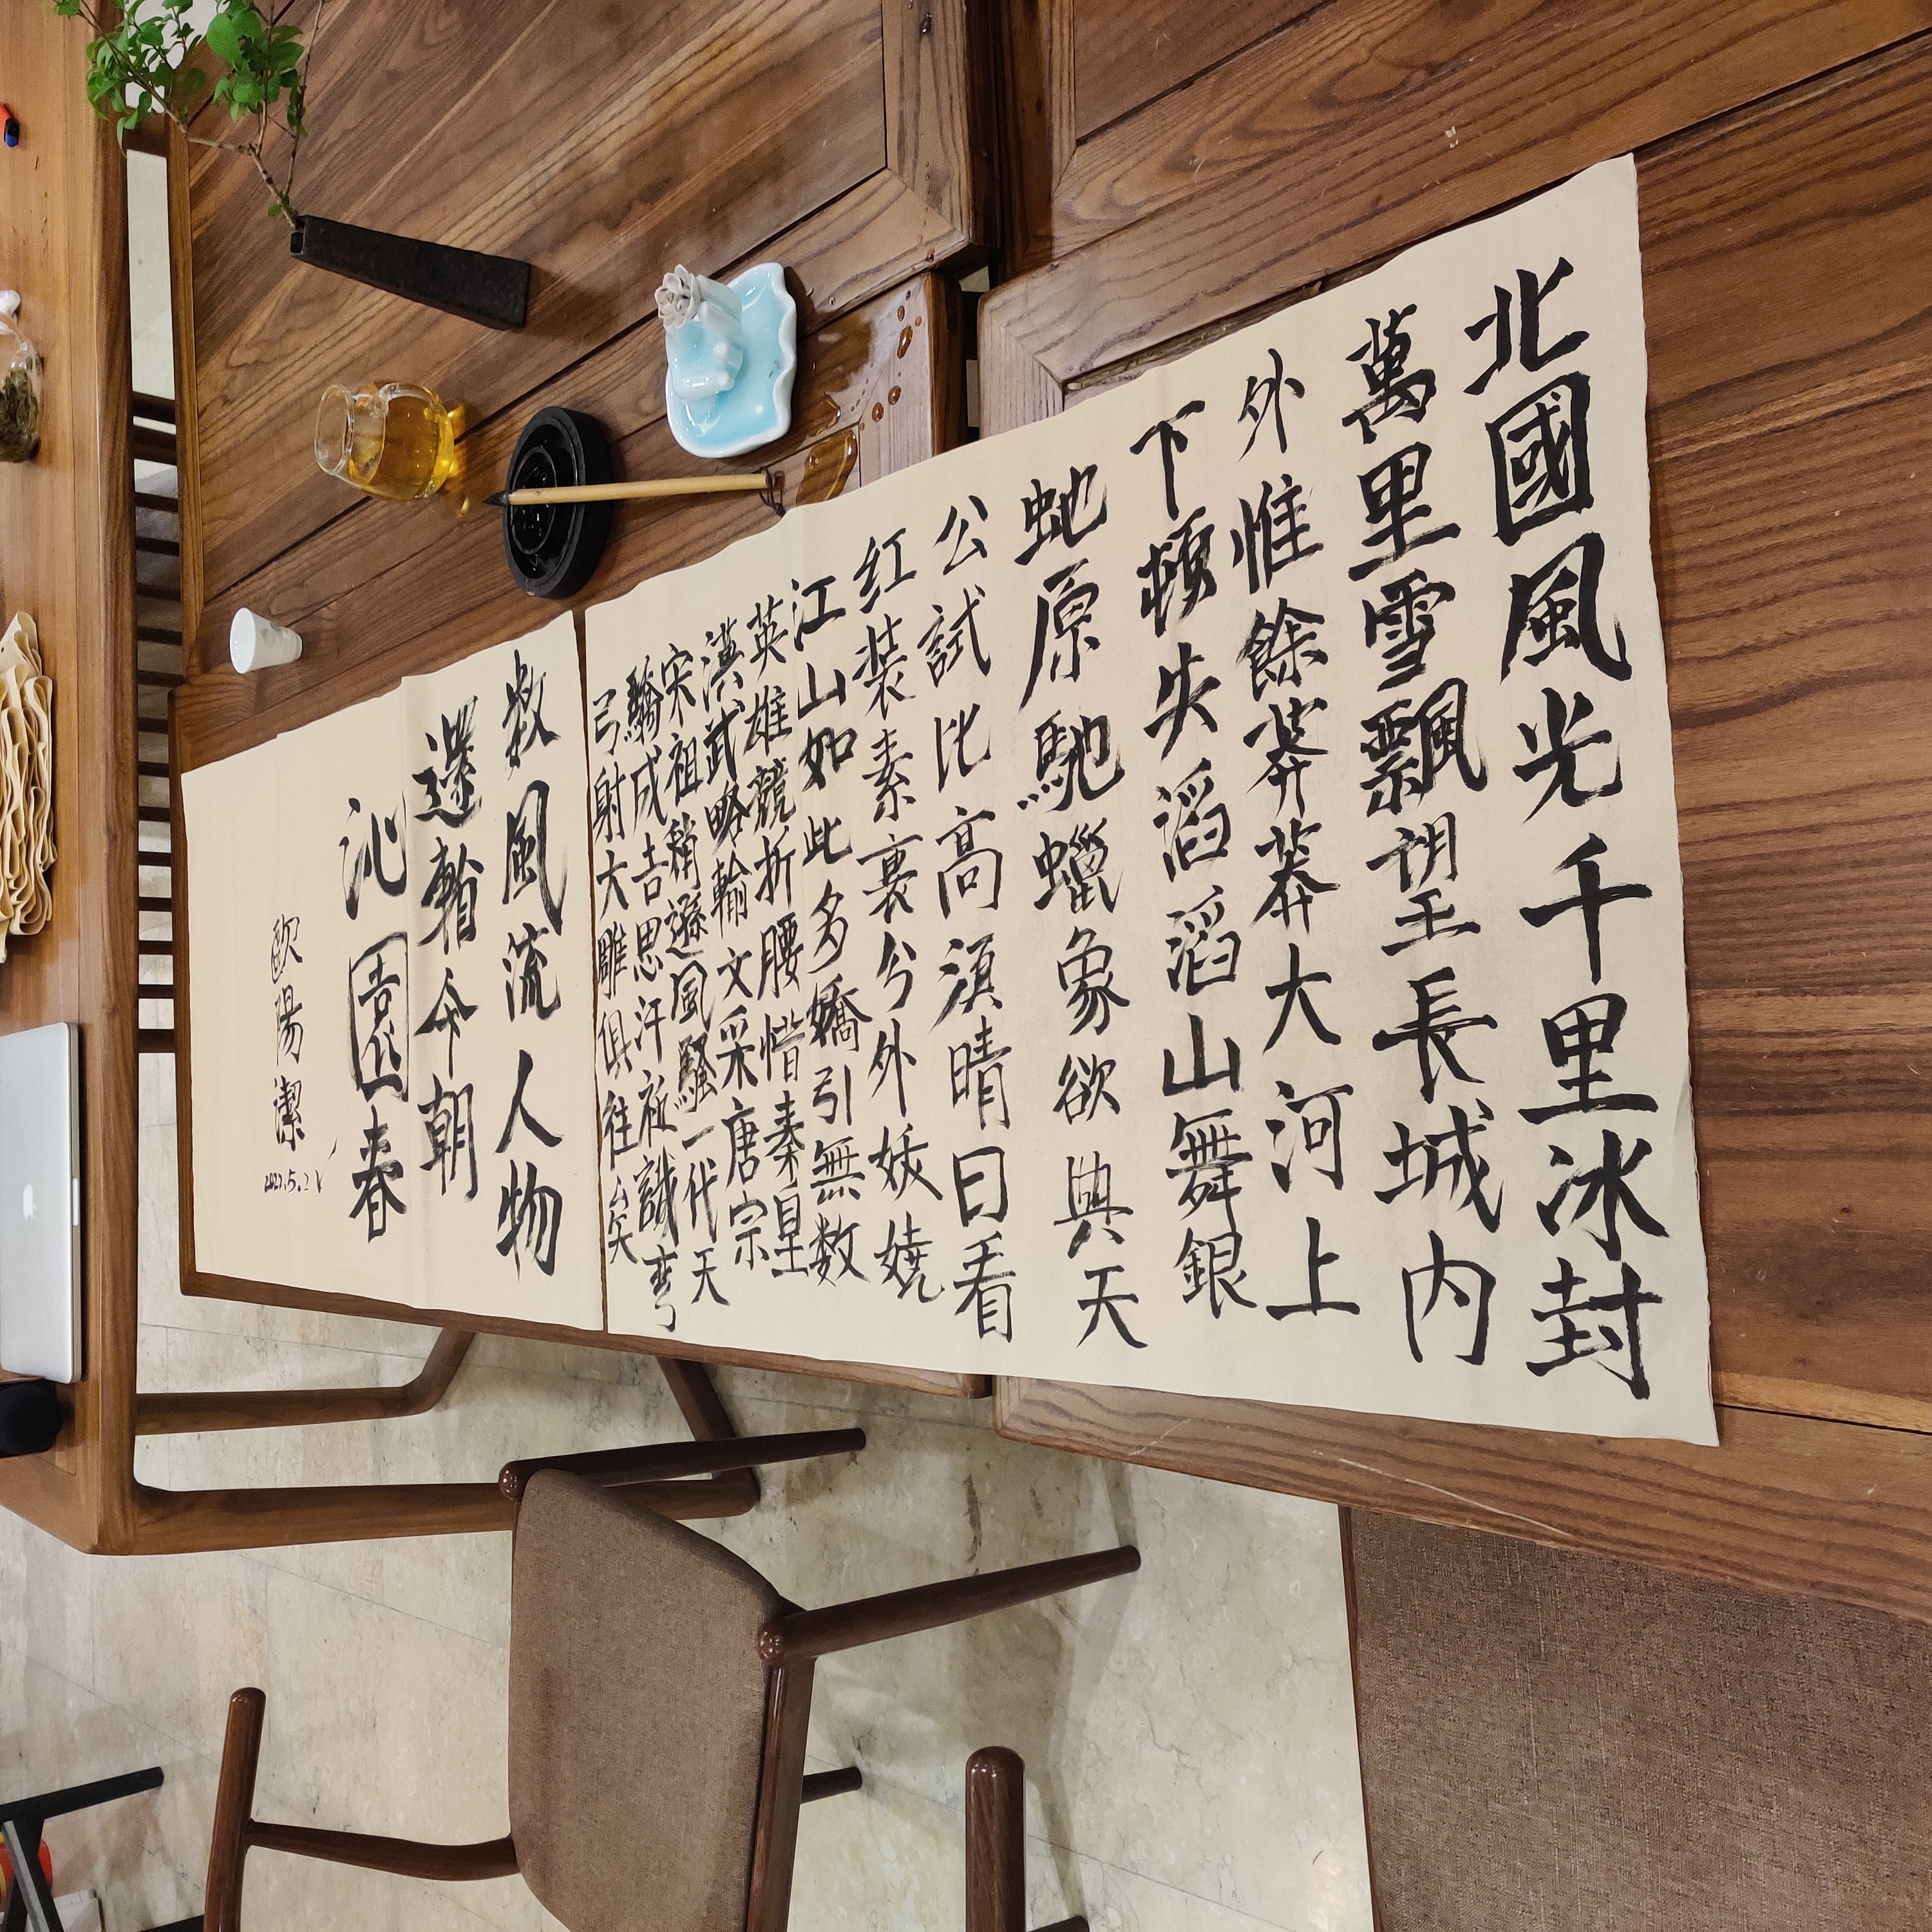 北國風光千里冰封
萬里雪飄望長城内
外惟餘莽莽大河上
下頓失滔滔山舞銀
虵原馳蠟象欲與天
公試比高須晴日看
红装素裹兮外妖嬈
江山如此多嬌引無数
英雄競折腰惜秦皇
漢武略輸文采唐宗
宋祖稍遜風騷一代天
驕成吉思汗祗識彎
弓射大雕俱往矣
数風流人物
還看今朝
沁園春
歐陽潔
2021.5.21